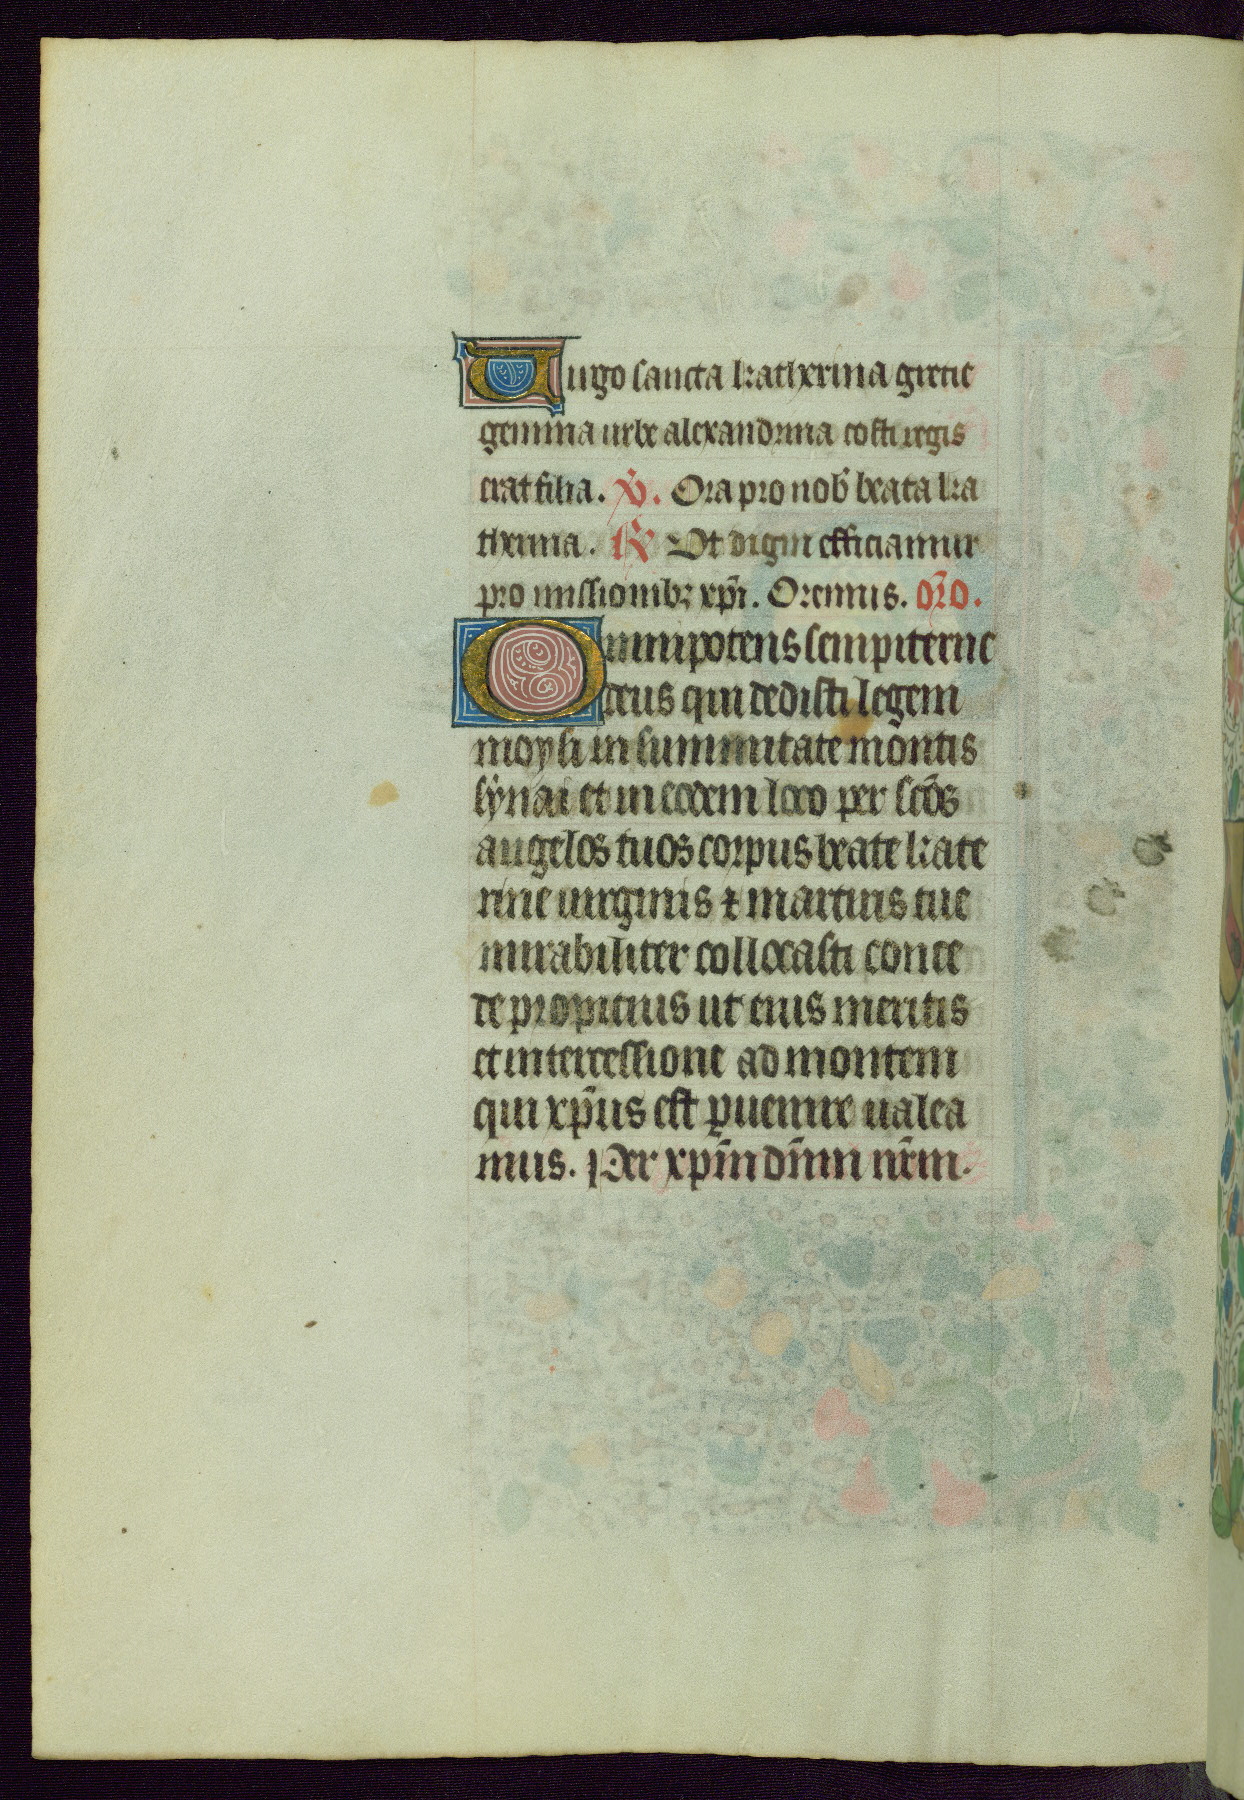 Uirgo sancta katherina grecie
gemma urbe alexandrina costi regis
erat filia. V̄. Ora pro nob̄ beata ka
therina. R̄ Ut digni efficiamur
pro missionibꝫ xp̄i. Oremus. or̄o.
Omnipotens sempiterne
deus qui dedisti legem
moysi in summitate montis
synai et in eodem loco per sc̄os
angelos tuos corpus beate kate
rine uirginis ⁊ martiris tue
mirabiliter collocasti conce
de propitius ut eius meritis
et intercessione ad montem
qui xp̄us est ꝑuenire ualea
mus. Per xp̄m dn̄m nr̄m.